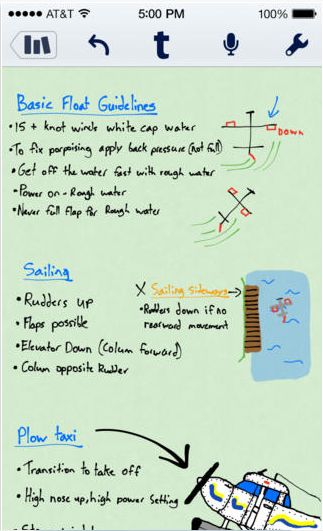 AT&T 5:00 PM 100%
t
Basic Float Guidelines
• 15 + knot winds white cap water
• To fix porpoising apply back pressure (not full)
• Get off the water fast with rough water
• Power on - Rough water
• Never full flap for Rough water
DOWN
Sailing
• Rudders up
• Flaps possible
• Elevator Down (Colum forward)
• Colum opposite Rudder
X Sailing Sideways
• Rudders down if no
rearward movement
Plow taxi
• Transition to take off
• High nose up, high power setting